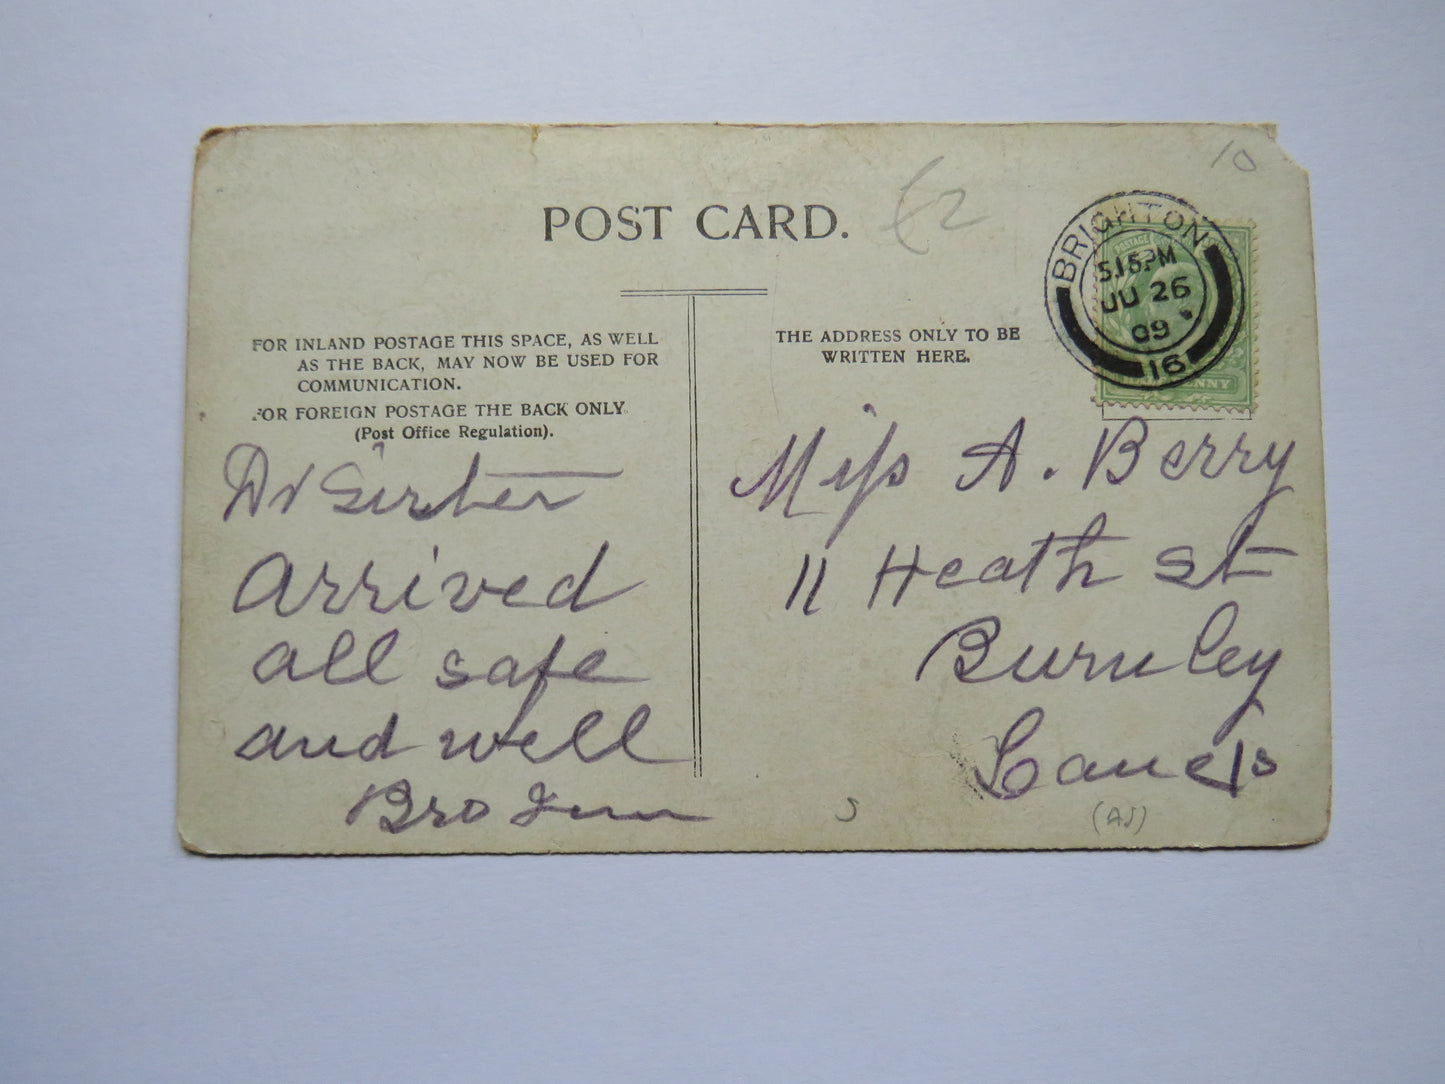 POST CARD.
£2
10
BRIGHTON
5.15PM
JU 26
09
16
FOR INLAND POSTAGE THIS SPACE, AS WELL
AS THE BACK, MAY NOW BE USED FOR
COMMUNICATION.
FOR FOREIGN POSTAGE THE BACK ONLY
(Post Office Regulation).
THE ADDRESS ONLY TO BE
WRITTEN HERE.
POSTAGE
PENNY
Dr Sister
Arrived
all safe
and well
Bro
Miss A. Berry
11 Heath St
Burnley
Lancs
(AJ)